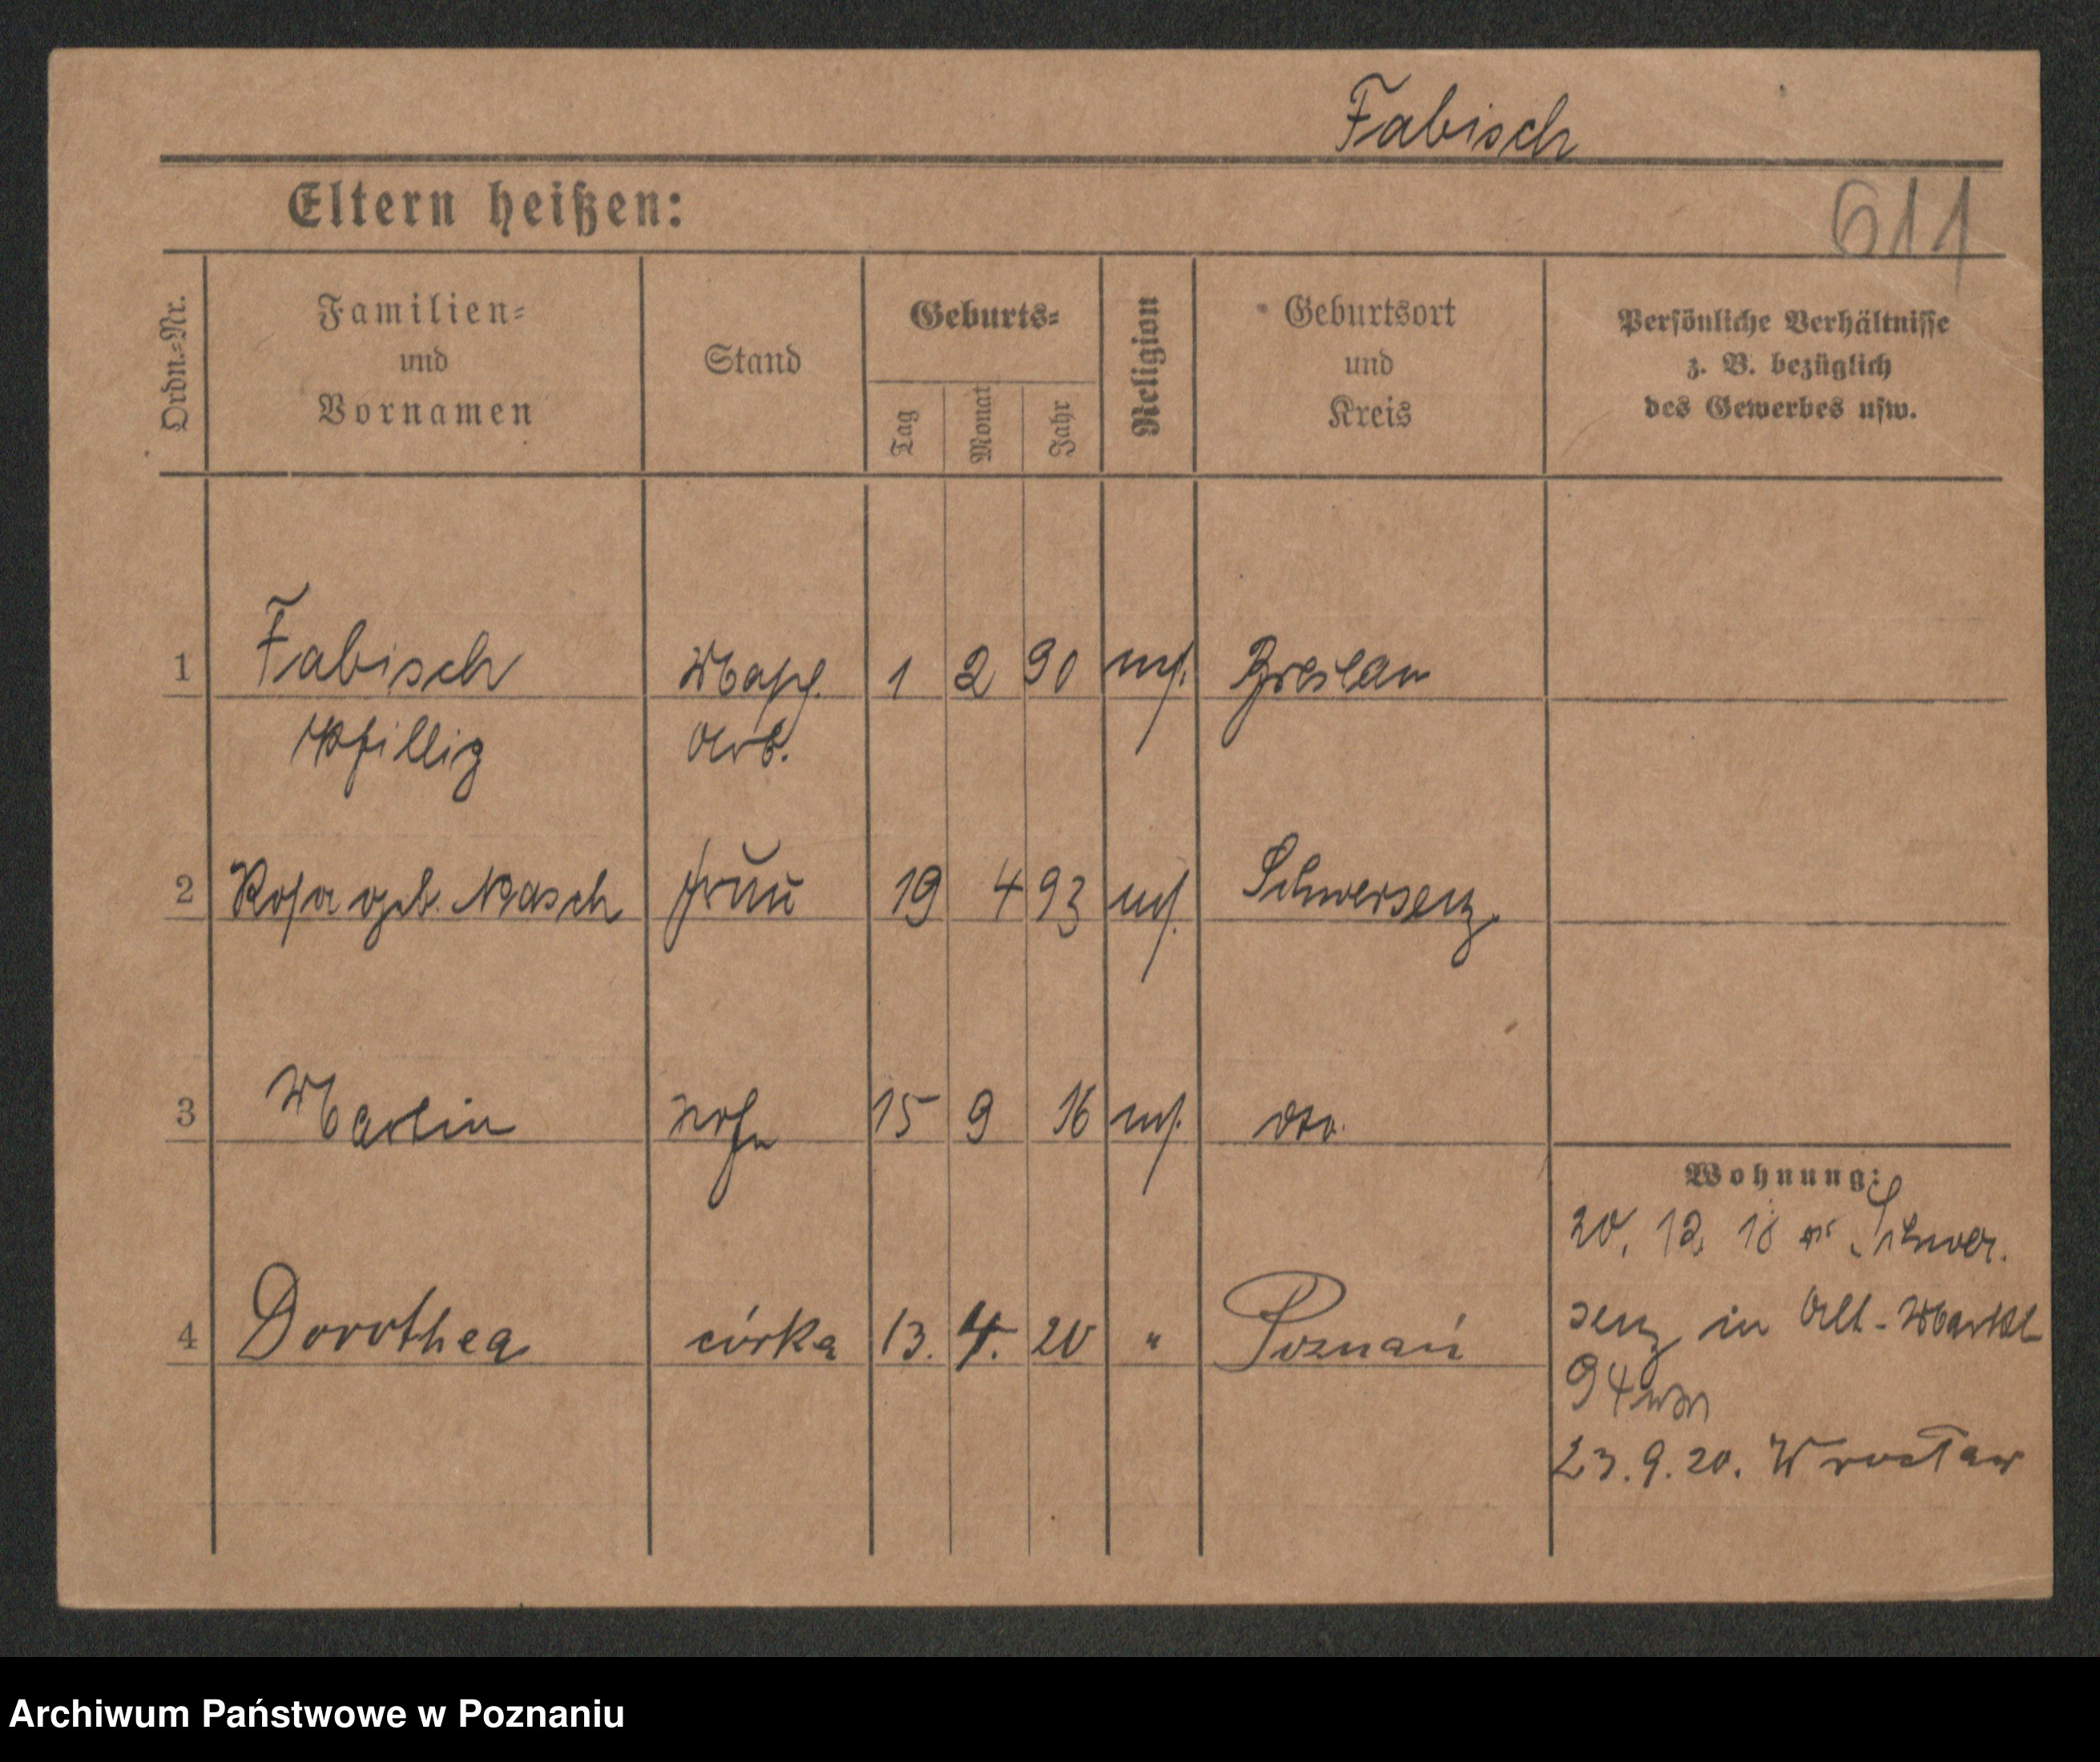 Fabisch
Eltern heißen:
611
Ordn.=Nr.
Familien=
und
Vornamen
Stand
Geburts=
Tag
Monat
Jahr
Religion
Geburtsort
und
Kreis
Persönliche Verhältnisse
z. B. bezüglich
des Gewerbes usw.
1 Fabisch 1 2 90 Breslau
Arb.
2 Rosa geb. Nasch Frau 19 4 93 Schwersenz
3 Martin Sohn 15 9 16 dto.
Wohnung:
20. 12. 18 Schwer.
4 Dorothea córka 13. 4. 20 " Poznań
senz in Alt-Markt
94
23. 9. 20. Wrocław
Archiwum Państwowe w Poznaniu